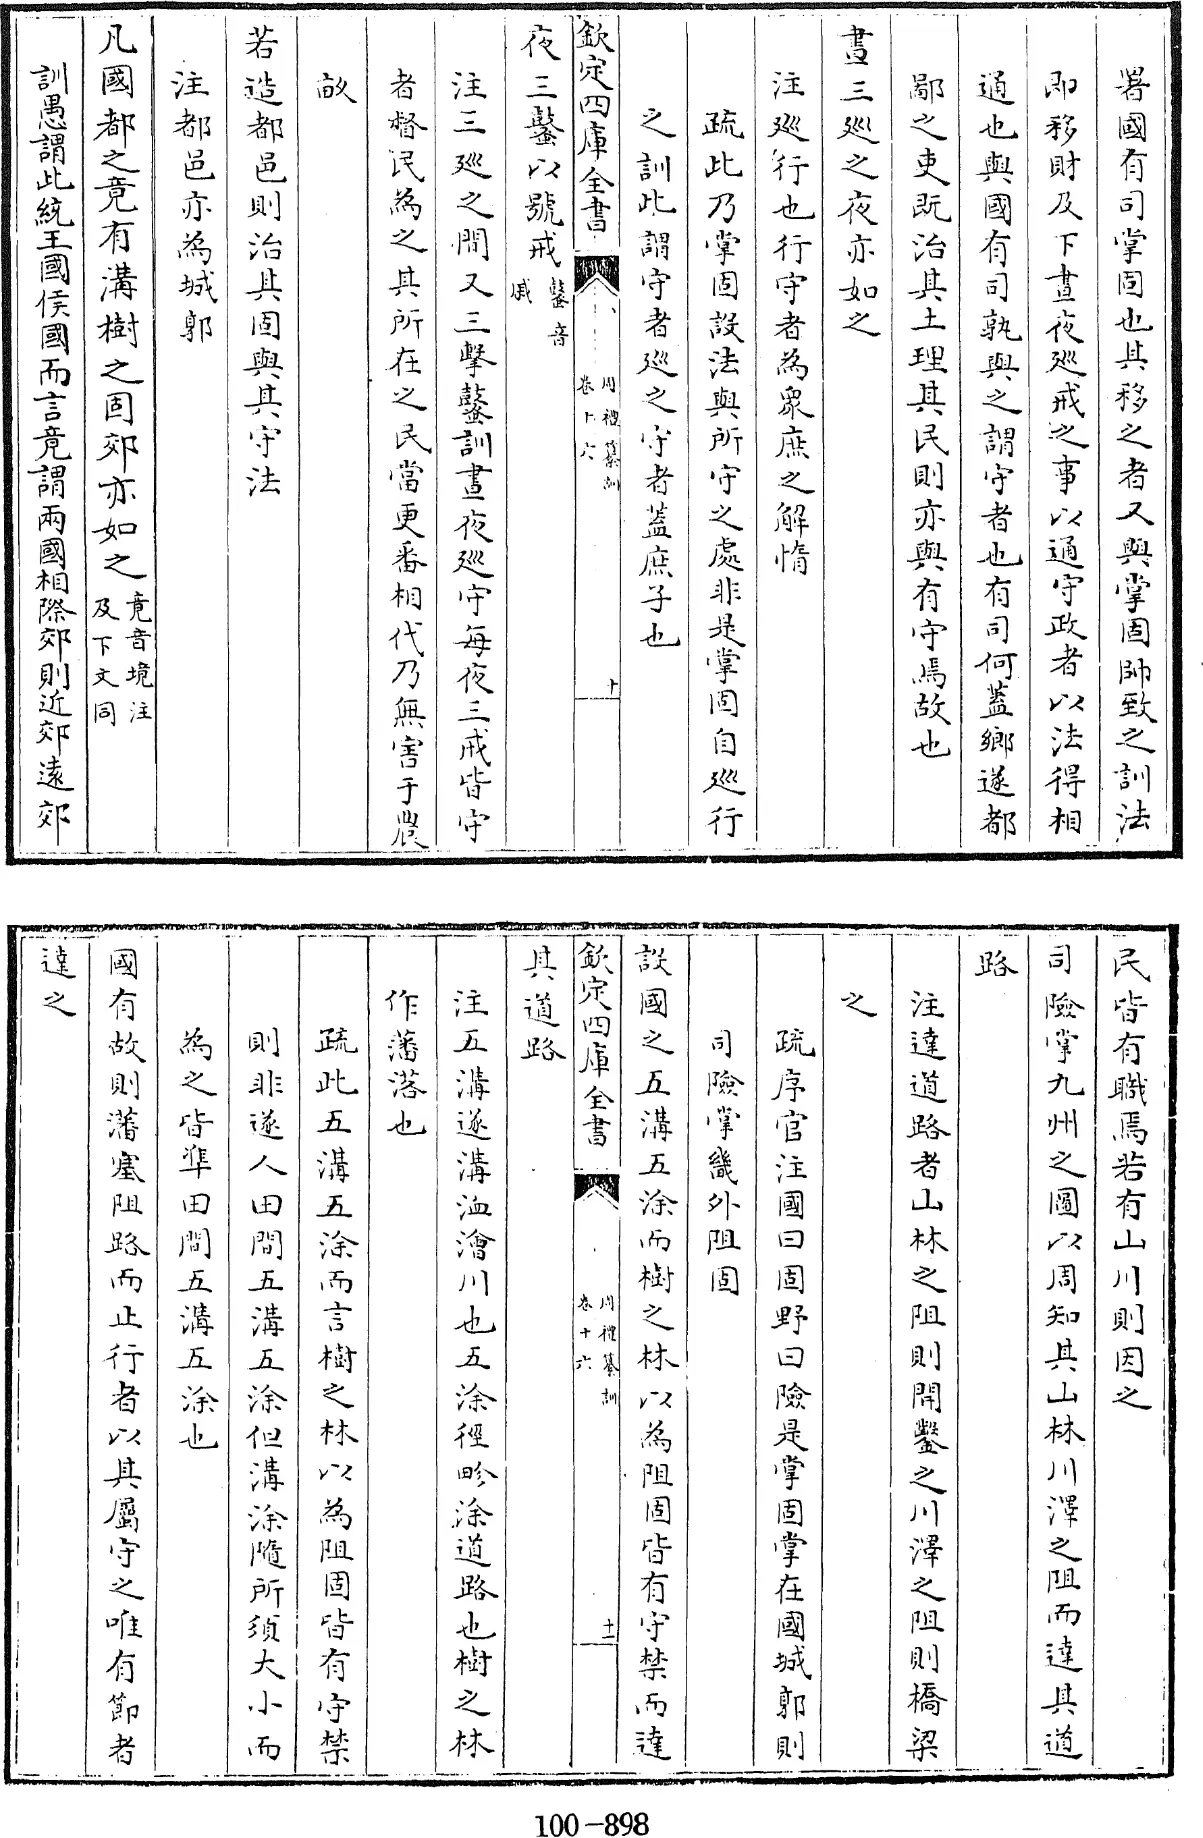 署國有司掌固也其移之者又與掌固帥致之訓法
即移財及下晝夜廵戒之事以通守政者以法得相
通也與國有司孰與之謂守者也有司何蓋鄉遂都
鄙之吏既治其土理其民則亦與有守焉故也
晝三廵之夜亦如之
注廵行也行守者為衆庶之解惰
疏此乃掌固設法與所守之處非是掌固自廵行
之訓此謂守者廵之守者蓋庶子也
欽定四庫全書
周禮纂訓
卷十六
十
夜三鼜以號戒鼜音
戚
注三廵之間又三擊鼜訓晝夜廵守每夜三戒皆守
者督民為之其所在之民當更番相代乃無害于農
畝
若造都邑則治其固與其守法
注都邑亦為城郭
凡國都之竟有溝樹之固郊亦如之竟音境注
及下文同
訓愚謂此統王國侯國而言竟謂兩國相際郊則近郊遠郊
民皆有職焉若有山川則因之
司險掌九州之圖以周知其山林川澤之阻而達其道
路
注達道路者山林之阻則開鑿之川澤之阻則橋梁
之
疏序官注國曰固野曰險是掌固掌在國城郭則
司險掌畿外阻固
設國之五溝五涂而樹之林以為阻固皆有守禁而達
欽定四庫全書
周禮纂訓
卷十六
十一
其道路
注五溝遂溝洫澮川也五涂徑畛涂道路也樹之林
作藩落也
疏此五溝五涂而言樹之林以為阻固皆有守禁
則非遂人田間五溝五涂但溝涂隨所須大小而
為之皆準田間五溝五涂也
國有故則藩塞阻路而止行者以其屬守之唯有節者
達之
100-898